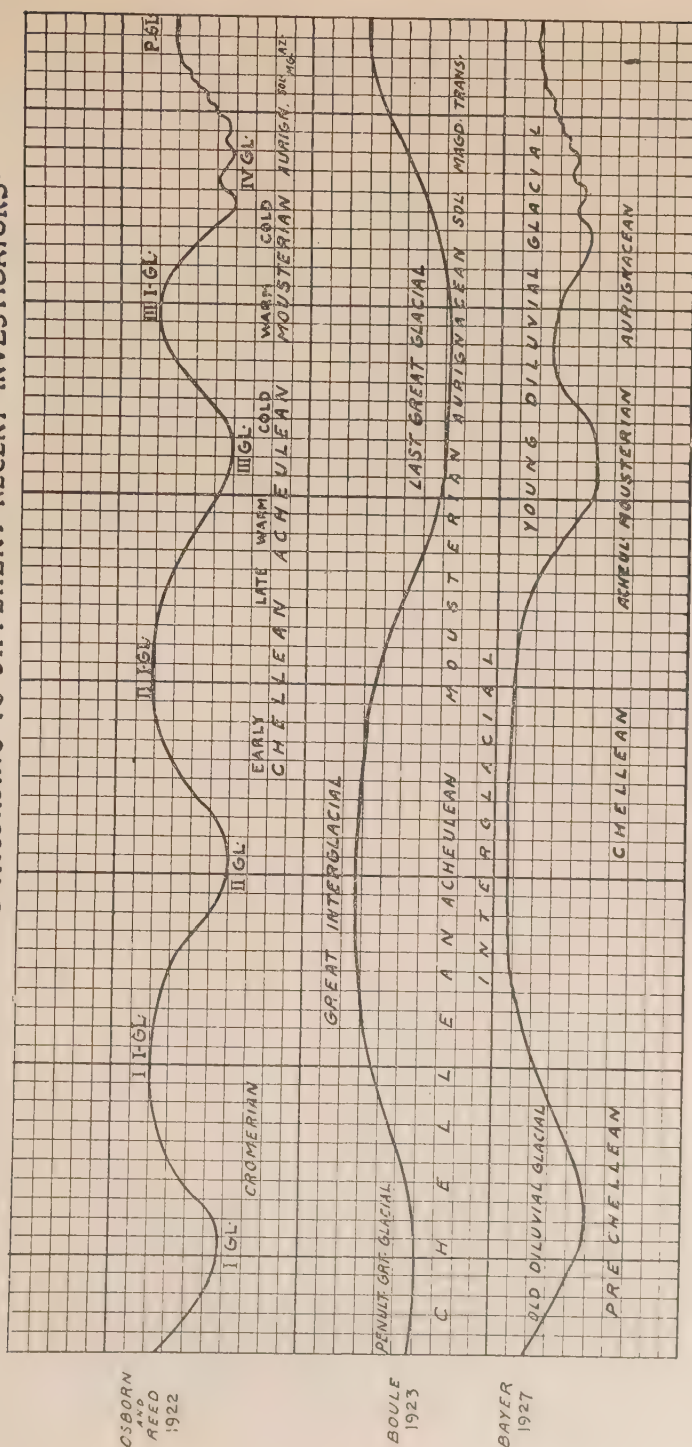 ACCORDING TO DIFFERENT RECENT INVESTIGATORS
OSBORN
AND
REED
1922
I GL.
CROMERIAN
I I-GL.
II GL.
II I-GL.
III GL.
III I-GL.
IV GL.
P-GL.
EARLY LATE WARM COLD WARM COLD
CHELLEAN ACHEULEAN MOUSTERIAN AURIGN. SOL. MG. AZ.
BOULE
1923
PENULT. GRT. GLACIAL
GREAT INTERGLACIAL
LAST GREAT GLACIAL
CHELLEAN ACHEULEAN MOUSTERIAN AURIGNACEAN SOL. MAGD. TRANS.
BAYER
1927
OLD DILUVIAL GLACIAL
INTERGLACIAL
YOUNG DILUVIAL GLACIAL
PRE CHELLEAN
CHELLEAN
ACHEUL-MOUSTERIAN
AURIGNACEAN